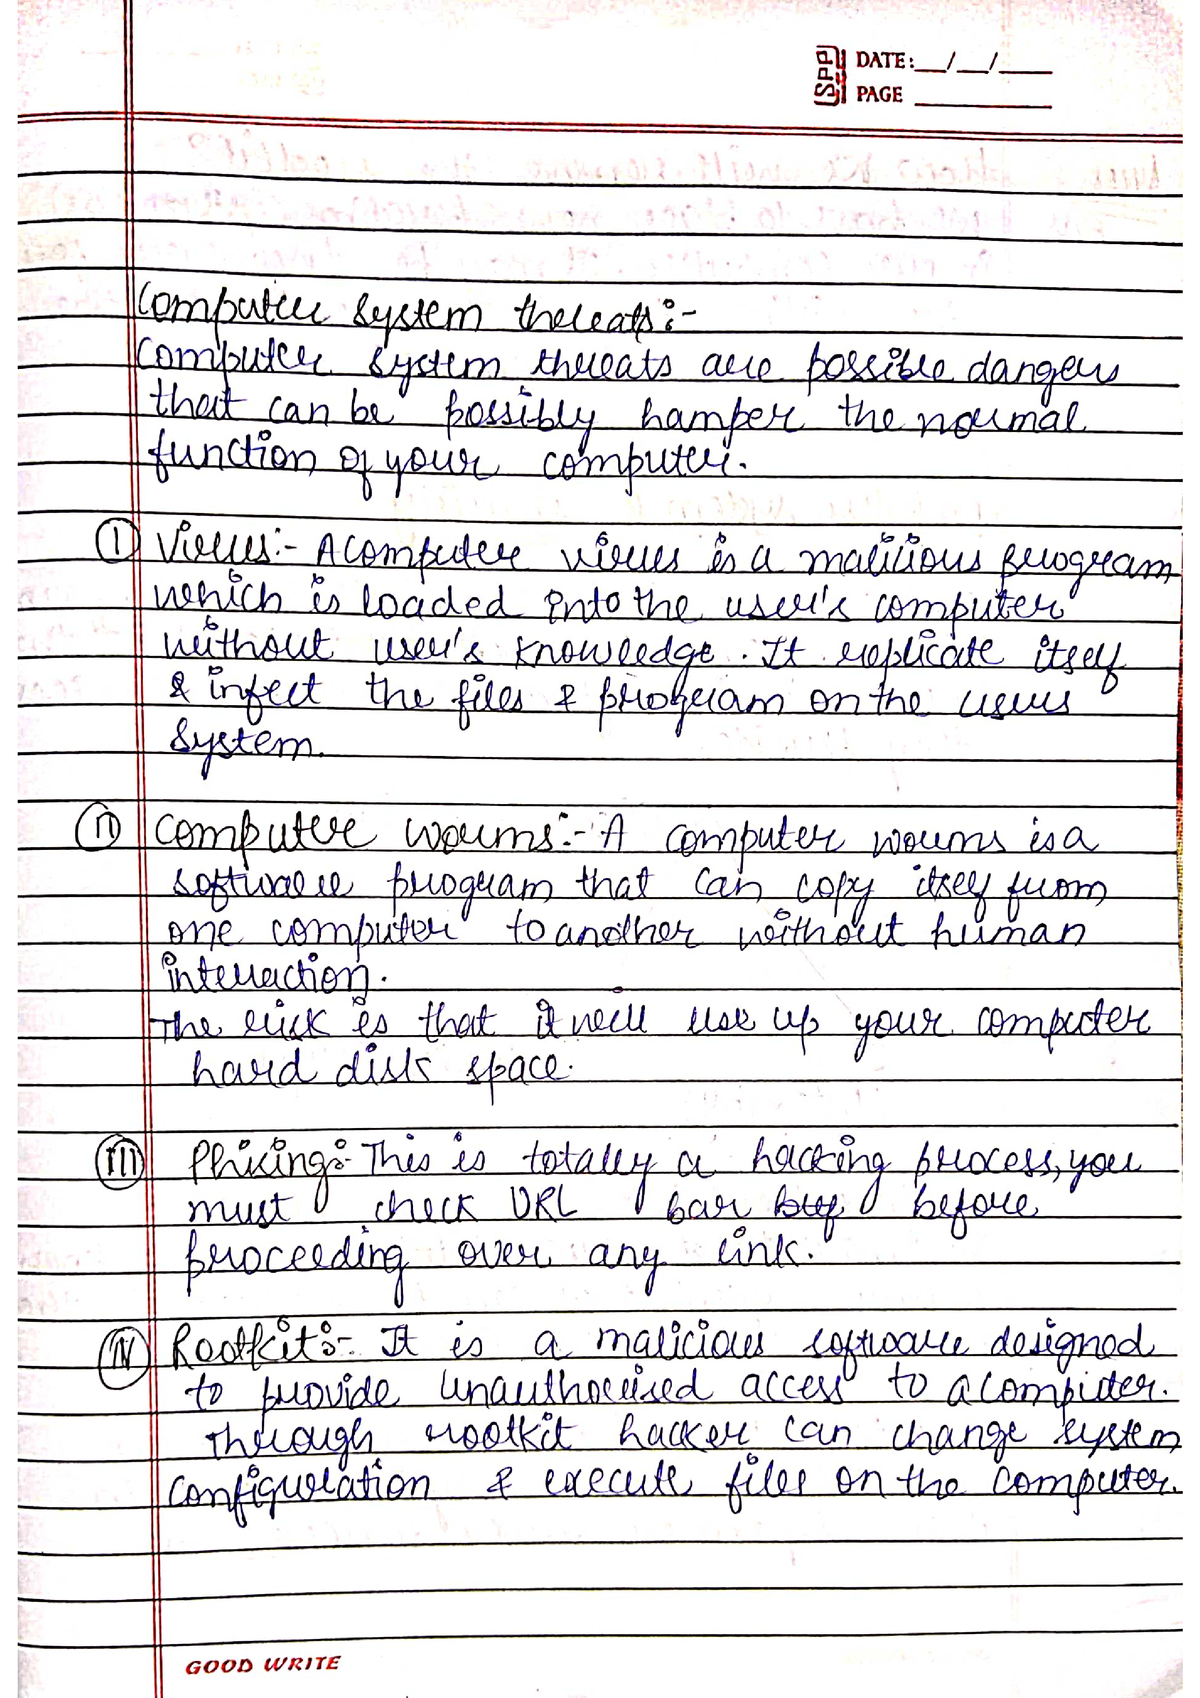 SPP DATE: __/__/____
PAGE ________
Computer System threats:-
Computer system threats are possible dangers
that can be possibly hamper the normal
function of your computer.
I Virus:- A computer virus is a malicious program
which is loaded into the user's computer
without user's knowledge. It replicate itself
& infect the files & program on the users
system.
II Computer worms:- A computer worms is a
software program that can copy itself from
one computer to another without human
interaction.
The risk is that it will use up your computer
hard disk space.
III Phising:- This is totally a hacking process, you
must check URL bar before
proceeding over any link.
IV Rootkit:- It is a malicious software designed
to provide unauthorised access to a computer.
Through rootkit hacker can change system
configuration & execute files on the computer.
GOOD WRITE